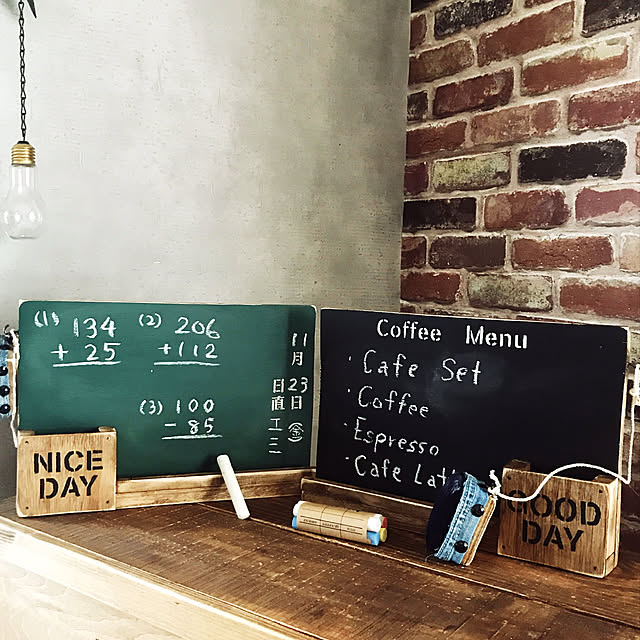 (1) 134
+ 25
(2) 206
+112
(3) 100
- 85
11月23日(金)
日直 エミ
NICE
DAY
Coffee Menu
・Cafe Set
・Coffee
・Espresso
・Cafe Lat
GOOD
DAY